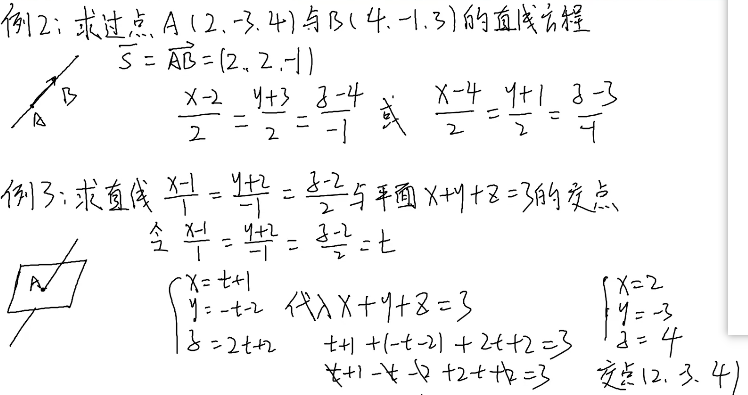 例2: 求过点 A(2.-3.4)与B(4.-1.3)的直线方程
S = AB = (2.2.-1)
A B
x-2/2 = y+3/2 = z-4/-1 或 x-4/2 = y+1/2 = z-3/-1
例3: 求直线 x-1/1 = y+2/-1 = z-2/2 与平面 x+y+z=3的交点
令 x-1/1 = y+2/-1 = z-2/2 = t
A
x=t+1
y=-t-2 代入 x+y+z=3
z=2t+2 t+1+(-t-2)+2t+2=3
t+1-t-2+2t+2=3
x=2
y=-3
z=4
交点(2.3.4)